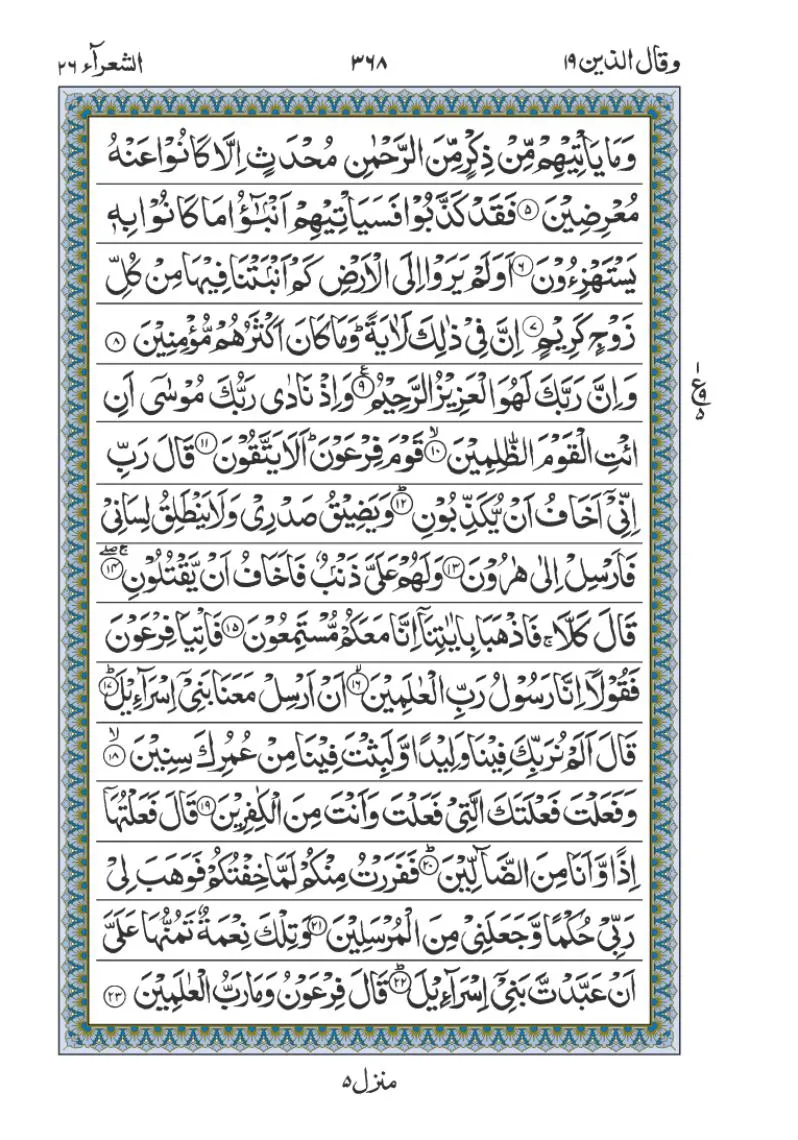 وقال الذين ١٩ ٣٦٨ الشعرآء ٢٦
وَمَا يَاْتِيْهِمْ مِّنْ ذِكْرٍ مِّنَ الرَّحْمٰنِ مُحْدَثٍ اِلَّا كَانُوْا عَنْهُ
مُعْرِضِيْنَ ۝٥ فَقَدْ كَذَّبُوْا فَسَيَاْتِيْهِمْ اَنْۢبٰٓؤُا مَا كَانُوْا بِهٖ
يَسْتَهْزِءُوْنَ ۝٦ اَوَلَمْ يَرَوْا اِلَى الْاَرْضِ كَمْ اَنْۢبَتْنَا فِيْهَا مِنْ كُلِّ
زَوْجٍ كَرِيْمٍ ۝٧ اِنَّ فِيْ ذٰلِكَ لَاٰيَةً ؕ وَمَا كَانَ اَكْثَرُهُمْ مُّؤْمِنِيْنَ ۝٨
وَاِنَّ رَبَّكَ لَهُوَ الْعَزِيْزُ الرَّحِيْمُ ۝٩ ع وَاِذْ نَادٰى رَبُّكَ مُوْسٰٓى اَنِ
١ ع ٩ ٥
ائْتِ الْقَوْمَ الظّٰلِمِيْنَ ۝١٠ ۙ قَوْمَ فِرْعَوْنَ ؕ اَلَا يَتَّقُوْنَ ۝١١ قَالَ رَبِّ
اِنِّيْٓ اَخَافُ اَنْ يُّكَذِّبُوْنِ ۝١٢ ؕ وَيَضِيْقُ صَدْرِيْ وَلَا يَنْطَلِقُ لِسَانِيْ
فَاَرْسِلْ اِلٰى هٰرُوْنَ ۝١٣ وَلَهُمْ عَلَيَّ ذَنْۢبٌ فَاَخَافُ اَنْ يَّقْتُلُوْنِ ۝١٤ ۚ ۖ
قَالَ كَلَّا ۚ فَاذْهَبَا بِاٰيٰتِنَآ اِنَّا مَعَكُمْ مُّسْتَمِعُوْنَ ۝١٥ فَاْتِيَا فِرْعَوْنَ
فَقُوْلَآ اِنَّا رَسُوْلُ رَبِّ الْعٰلَمِيْنَ ۝١٦ ۙ اَنْ اَرْسِلْ مَعَنَا بَنِيْٓ اِسْرَآءِيْلَ ۝١٧ ؕ
قَالَ اَلَمْ نُرَبِّكَ فِيْنَا وَلِيْدًا وَّلَبِثْتَ فِيْنَا مِنْ عُمُرِكَ سِنِيْنَ ۝١٨ ۙ
وَفَعَلْتَ فَعْلَتَكَ الَّتِيْ فَعَلْتَ وَاَنْتَ مِنَ الْكٰفِرِيْنَ ۝١٩ قَالَ فَعَلْتُهَآ
اِذًا وَّاَنَا مِنَ الضَّآلِّيْنَ ۝٢٠ ؕ فَفَرَرْتُ مِنْكُمْ لَمَّا خِفْتُكُمْ فَوَهَبَ لِيْ
رَبِّيْ حُكْمًا وَّجَعَلَنِيْ مِنَ الْمُرْسَلِيْنَ ۝٢١ وَتِلْكَ نِعْمَةٌ تَمُنُّهَا عَلَيَّ
اَنْ عَبَّدْتَّ بَنِيْٓ اِسْرَآءِيْلَ ۝٢٢ ؕ قَالَ فِرْعَوْنُ وَمَا رَبُّ الْعٰلَمِيْنَ ۝٢٣
منزل ٥